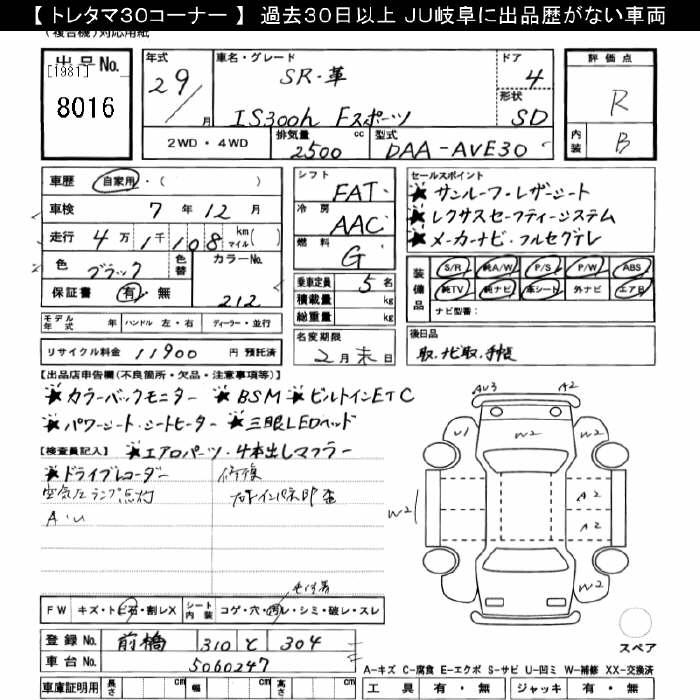 【 トレタマ30コーナー 】 過去30日以上 JU岐阜に出品歴がない車両
(複合機)対応用紙
出品No.
[1981]
8016
年式
29/
月
車名・グレード
SR・革
IS300h Fスポーツ
ドア
4
形状
SD
評価点
R
内装
B
2WD・4WD
排気量
2500
cc
型式
DAA-AVE30
車歴
自家用・( )
車検
7年12月
走行
4万1千108
km
マイル( )
色
ブラック
色替
カラーNo.
212
保証書
有・無
シフト
FAT
冷房
AAC
燃料
G
乗車定員
5名
積載量
kg
総重量
kg
セールスポイント
★サンルーフ・レザーシート
★レクサスセーフティーシステム
★メーカーナビ・フルセグTV
装備品
S/R
純A/W
P/S
P/W
ABS
純TV
純ナビ
革シート
外ナビ
エアB
ナビ型番:
モデル年式
年
ハンドル 左・右
ディーラー・並行
リサイクル料金
11900
円 預託済
名変期限
2月末日
後日品
取、ナビ取、手帳
【出品店申告欄(不良箇所・欠品・注意事項等)】
★カラーバックモニター ★BSM ★ビルトインETC
★パワーシート・シートヒーター ★三眼LEDヘッド
【検査員記入】
★エアロパーツ・4本出しマフラー
★ドライブレコーダー
修復
空気圧ランプ点灯
A・U
AU3
A2
U1
W2
W2
W2
A2
A2
W2
W2
FW
キズ・トビ石・割レX
シート内装
コゲ・穴・汚レ・シミ・破レ・スレ
登録No.
前橋
310
と
304
車台No.
5060247
車庫証明用
長さ
cm
幅
cm
高さ
cm
スペア
A-キズ C-腐食 E-エクボ S-サビ U-凹ミ W-補修 XX-交換済
工具
有・無
ジャッキ
有・無